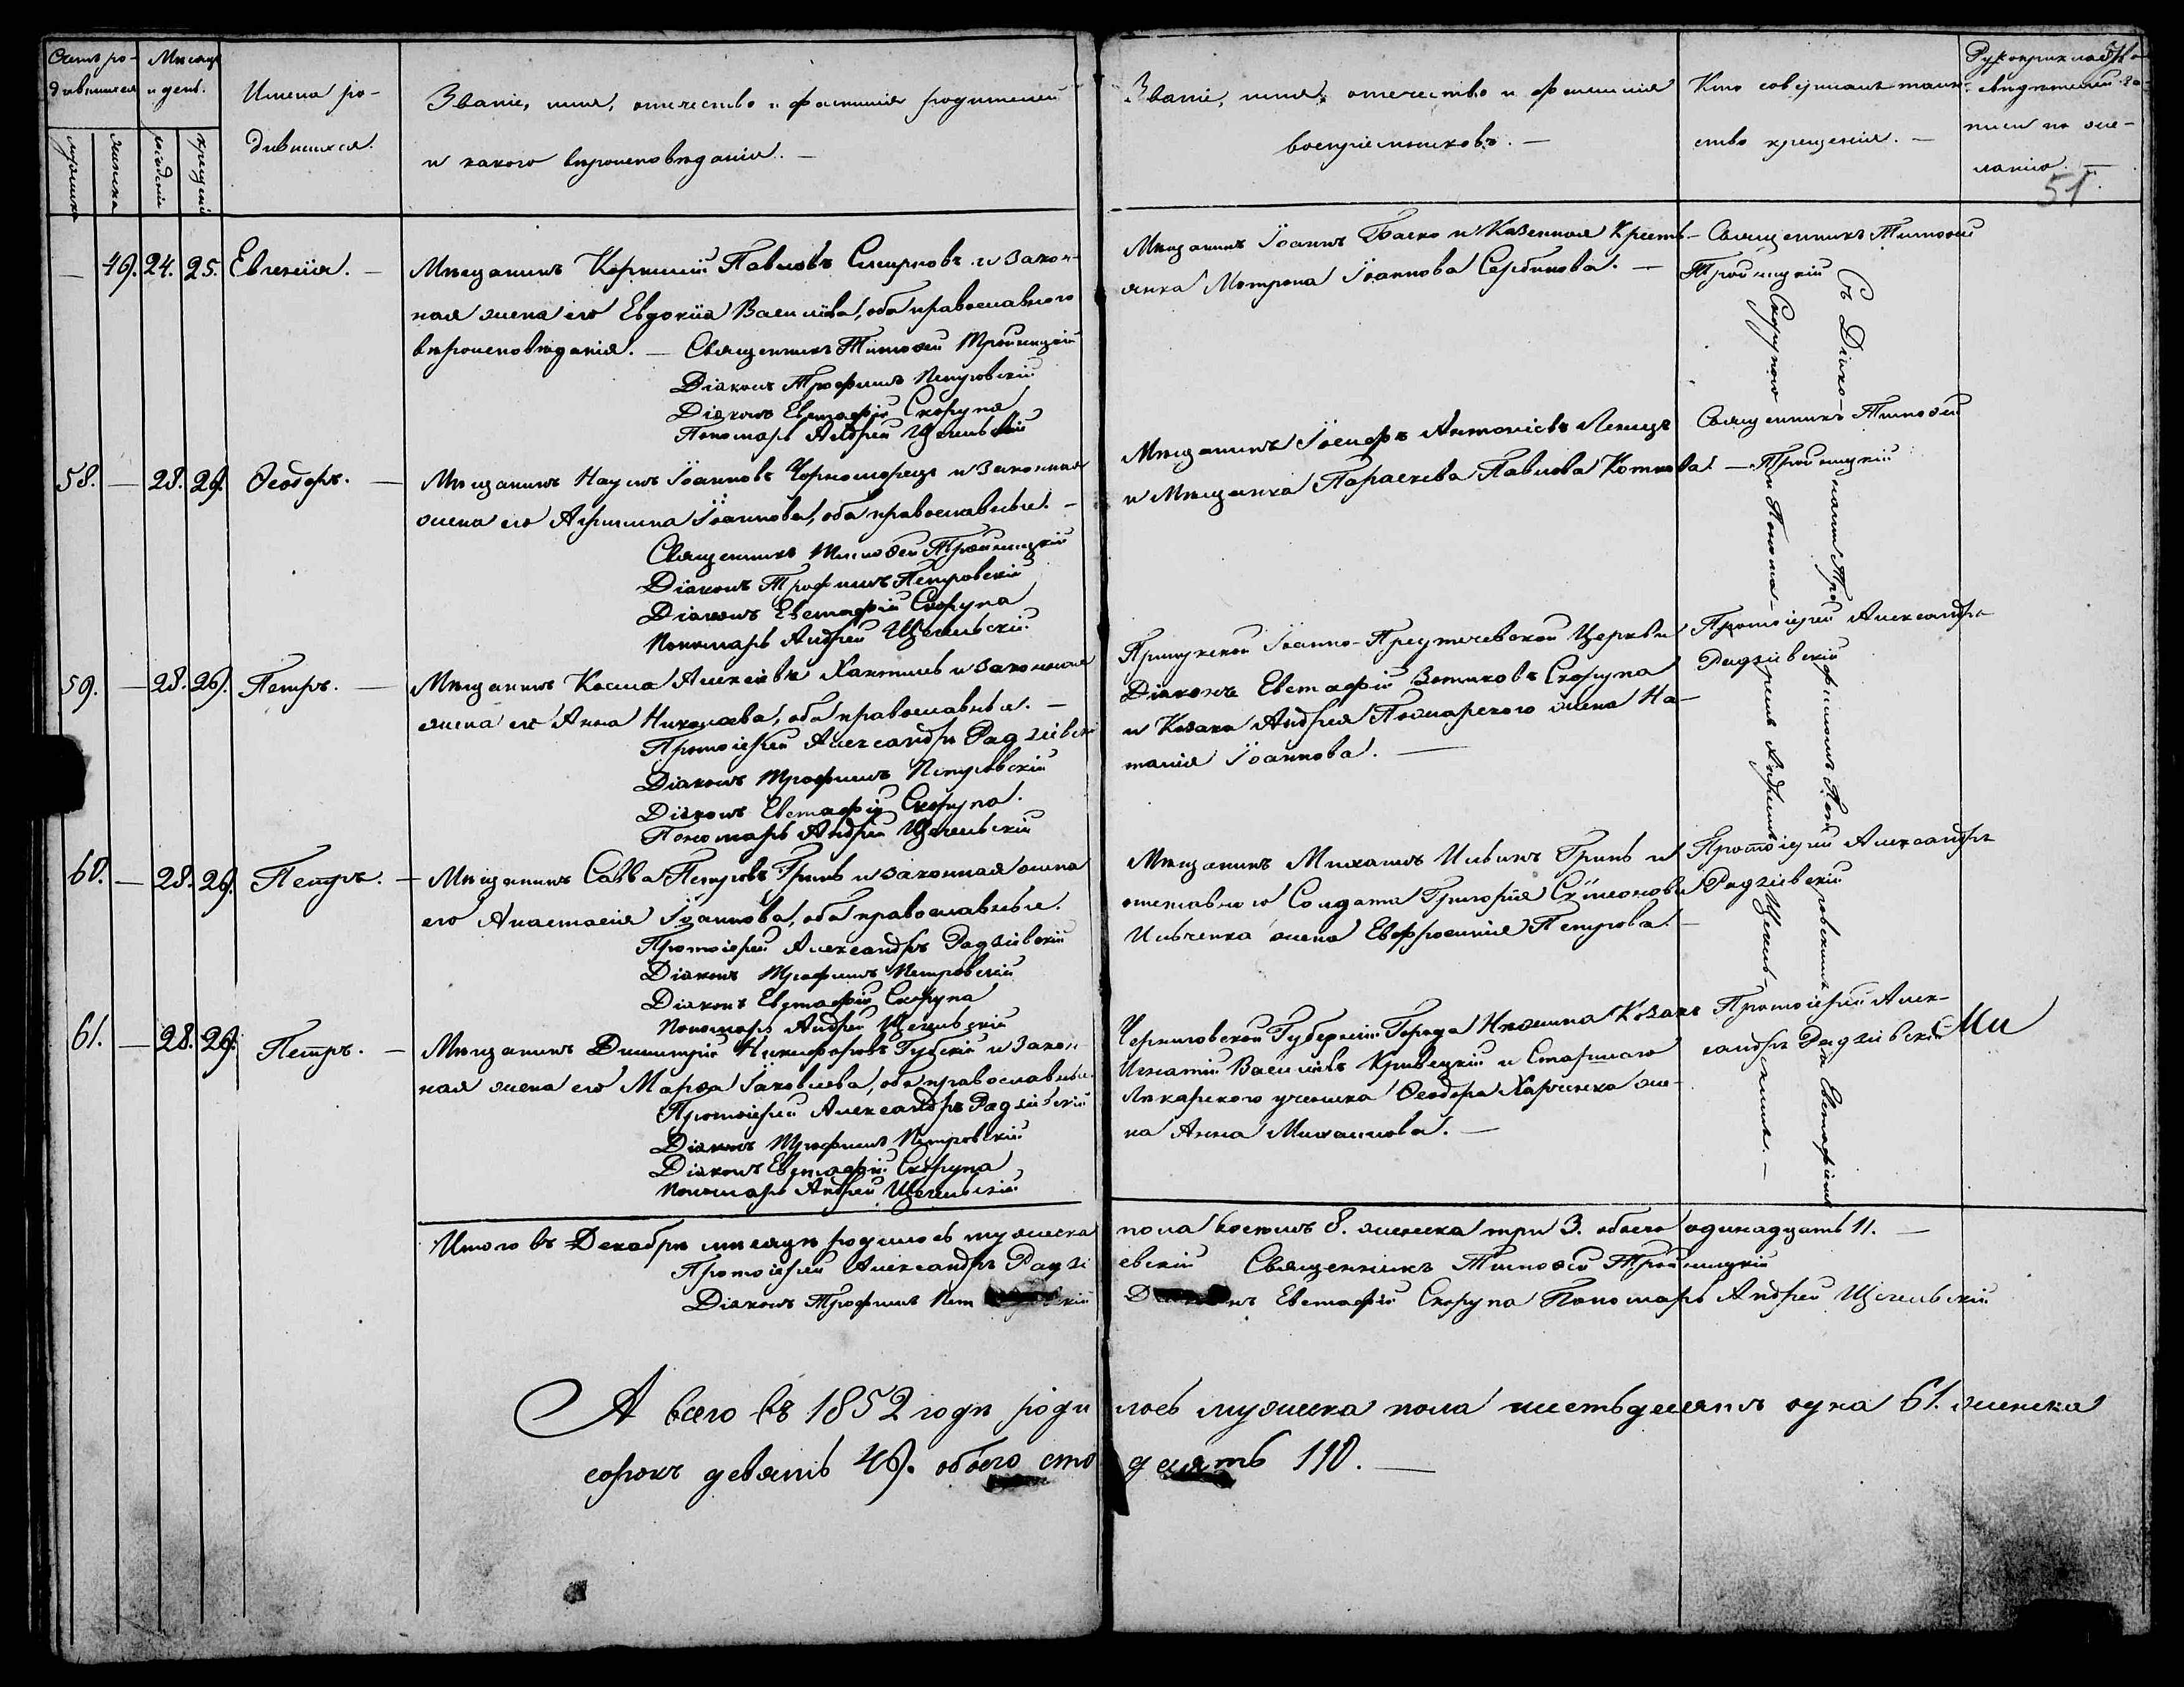 Счетъ ро-
дившихся
Мѣсяцъ
и день.
мужеска
женска
рожденія
крещенія
Имена ро-
дившихся.
Званіе, имя, отечество и фамилія родителей
и какого вѣроисповѣданія. —
Званіе, имя, отечество и фамилія
воспріемниковъ. —
Кто совершалъ таин-
ство крещенія. —
Рукоприкладство
свидѣтелей за-
писи по же-
ланію. —
51.
— 49. 24. 25. Евгенія. —
Мѣщанинъ Корнилій Павловъ Смирновъ и закон-
ная жена его Евдокія Василіева, оба православного
вѣроисповѣданія. — Священникъ Тимоѳей Тройницкій
Діаконъ Трофимъ Петровскій
Діаконъ Евстафій Скорупа
Пономарь Андрей Щегельскій
Мѣщанинъ Іоаннъ Баско и Казенная Кресть-
янка Матрона Іоаннова Сербинова. —
Священникъ Тимоѳей
Тройницкій
58. — 28. 29. Ѳеодоръ. —
Мѣщанинъ Наумъ Іоанновъ Черноморецъ и законная
жена его Агрипина Іоаннова, оба православные. —
Священникъ Тимоѳей Тройницкій
Діаконъ Трофимъ Петровскій
Діаконъ Евстафій Скорупа
Пономарь Андрей Щегельскій
Мѣщанинъ Іосифъ Антоніевъ
и Мѣщанка Параскева Павлова —
Священникъ Тимоѳей
Тройницкій
59. — 28. 29. Петръ. —
Мѣщанинъ Косма Алексіевъ и законная
жена его Анна Николаева, оба православные. —
Протоіерей Александръ Радзіевскій
Діаконъ Трофимъ Петровскій
Діаконъ Евстафій Скорупа.
Пономарь Андрей Щегельскій
Прилукской Іоанно-Предтечевской Церкви
Діаконъ Евстафій Скорупа
и Козака Андрея жена На-
талія Іоаннова. —
Протоіерей Александръ
Радзіевскій
60. — 28. 29. Петръ. —
Мѣщанинъ Савва Петровъ Гринь и законная жена
его Анастасія Іоаннова, оба православные.
Протоіерей Александръ Радзіевскій
Діаконъ Трофимъ Петровскій
Діаконъ Евстафій Скорупа
Пономарь Андрей Щегельскій
Мѣщанинъ Михаилъ Ильинъ Гринь и
отставного Солдата Григорія Сѵмеонова
Ильченка жена Евфросинія Петрова. —
Протоіерей Александръ
Радзіевскій
61. — 28. 29. Петръ. —
Мѣщанинъ Димитрій Никифоровъ Губскій и закон-
ная жена его Марѳа Іаковлева, оба православные.
Протоіерей Александръ Радзіевскій
Діаконъ Трофимъ Петровскій
Діаконъ Евстафій Скорупа
Пономарь Андрей Щегельскій
Черниговской Губерніи Города Нѣжина Козакъ
Игнатій Василіевъ Кривецкій и Старшаго
Лѣкарского ученика Ѳеодора Харченка же-
на Анна Михаилова. —
Протоіерей Алек-
сандръ Радзіевскій
Съ Діако-
нами Трофимомъ Петровскимъ и Евстафіемъ
Скорупою и Понома-
ремъ Андреемъ Щегель-
скимъ. —
Итого въ Декабрѣ мѣсяцѣ родилось мужеска пола восемь 8. женска три 3. обоего одинадцать 11. —
Протоіерей Александръ Радзіевскій Священникъ Тимоѳей Тройницкій
Діаконъ Трофимъ Петровскій Діаконъ Евстафій Скорупа Пономарь Андрей Щегельскій
А всего въ 1852 годѣ родилось мужеска пола шестьдесятъ одна 61. женска
сорокъ девять 49. обоего сто десять 110. —